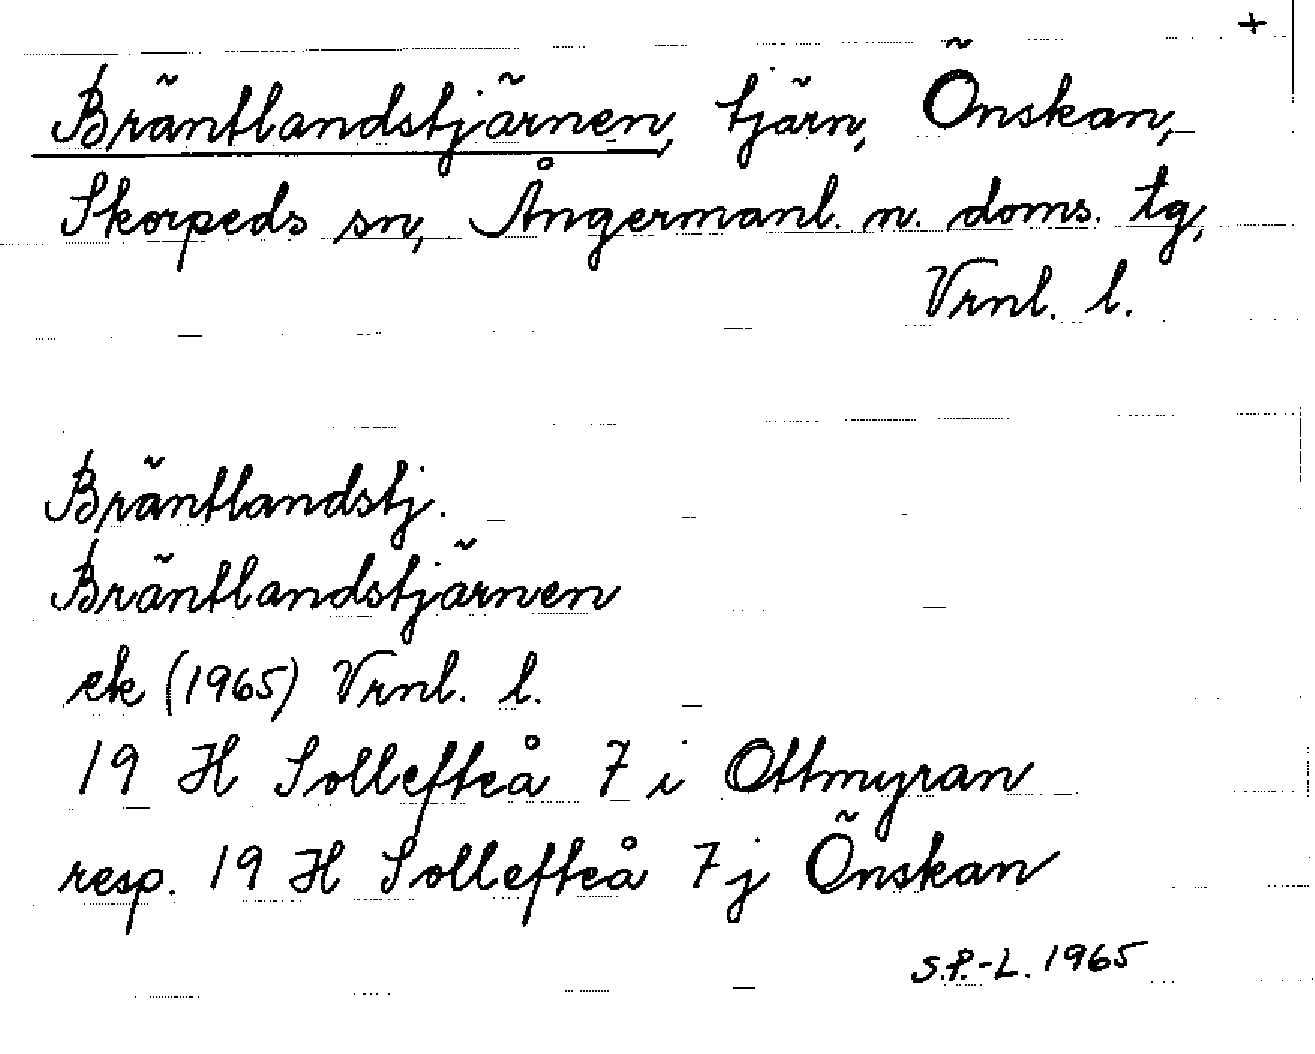 +
Bräntlandstjärnen, tjärn, Önskan,
Skorpeds sn, Ångermanl. n. doms. tg,
Vrnl. l.
Bräntlandstj.
Bräntlandstjärnen
ek (1965) Vrnl. l.
19 H Sollefteå 7 i Ottmyran
resp. 19 H Sollefteå 7 j Önskan
S.P.-L. 1965